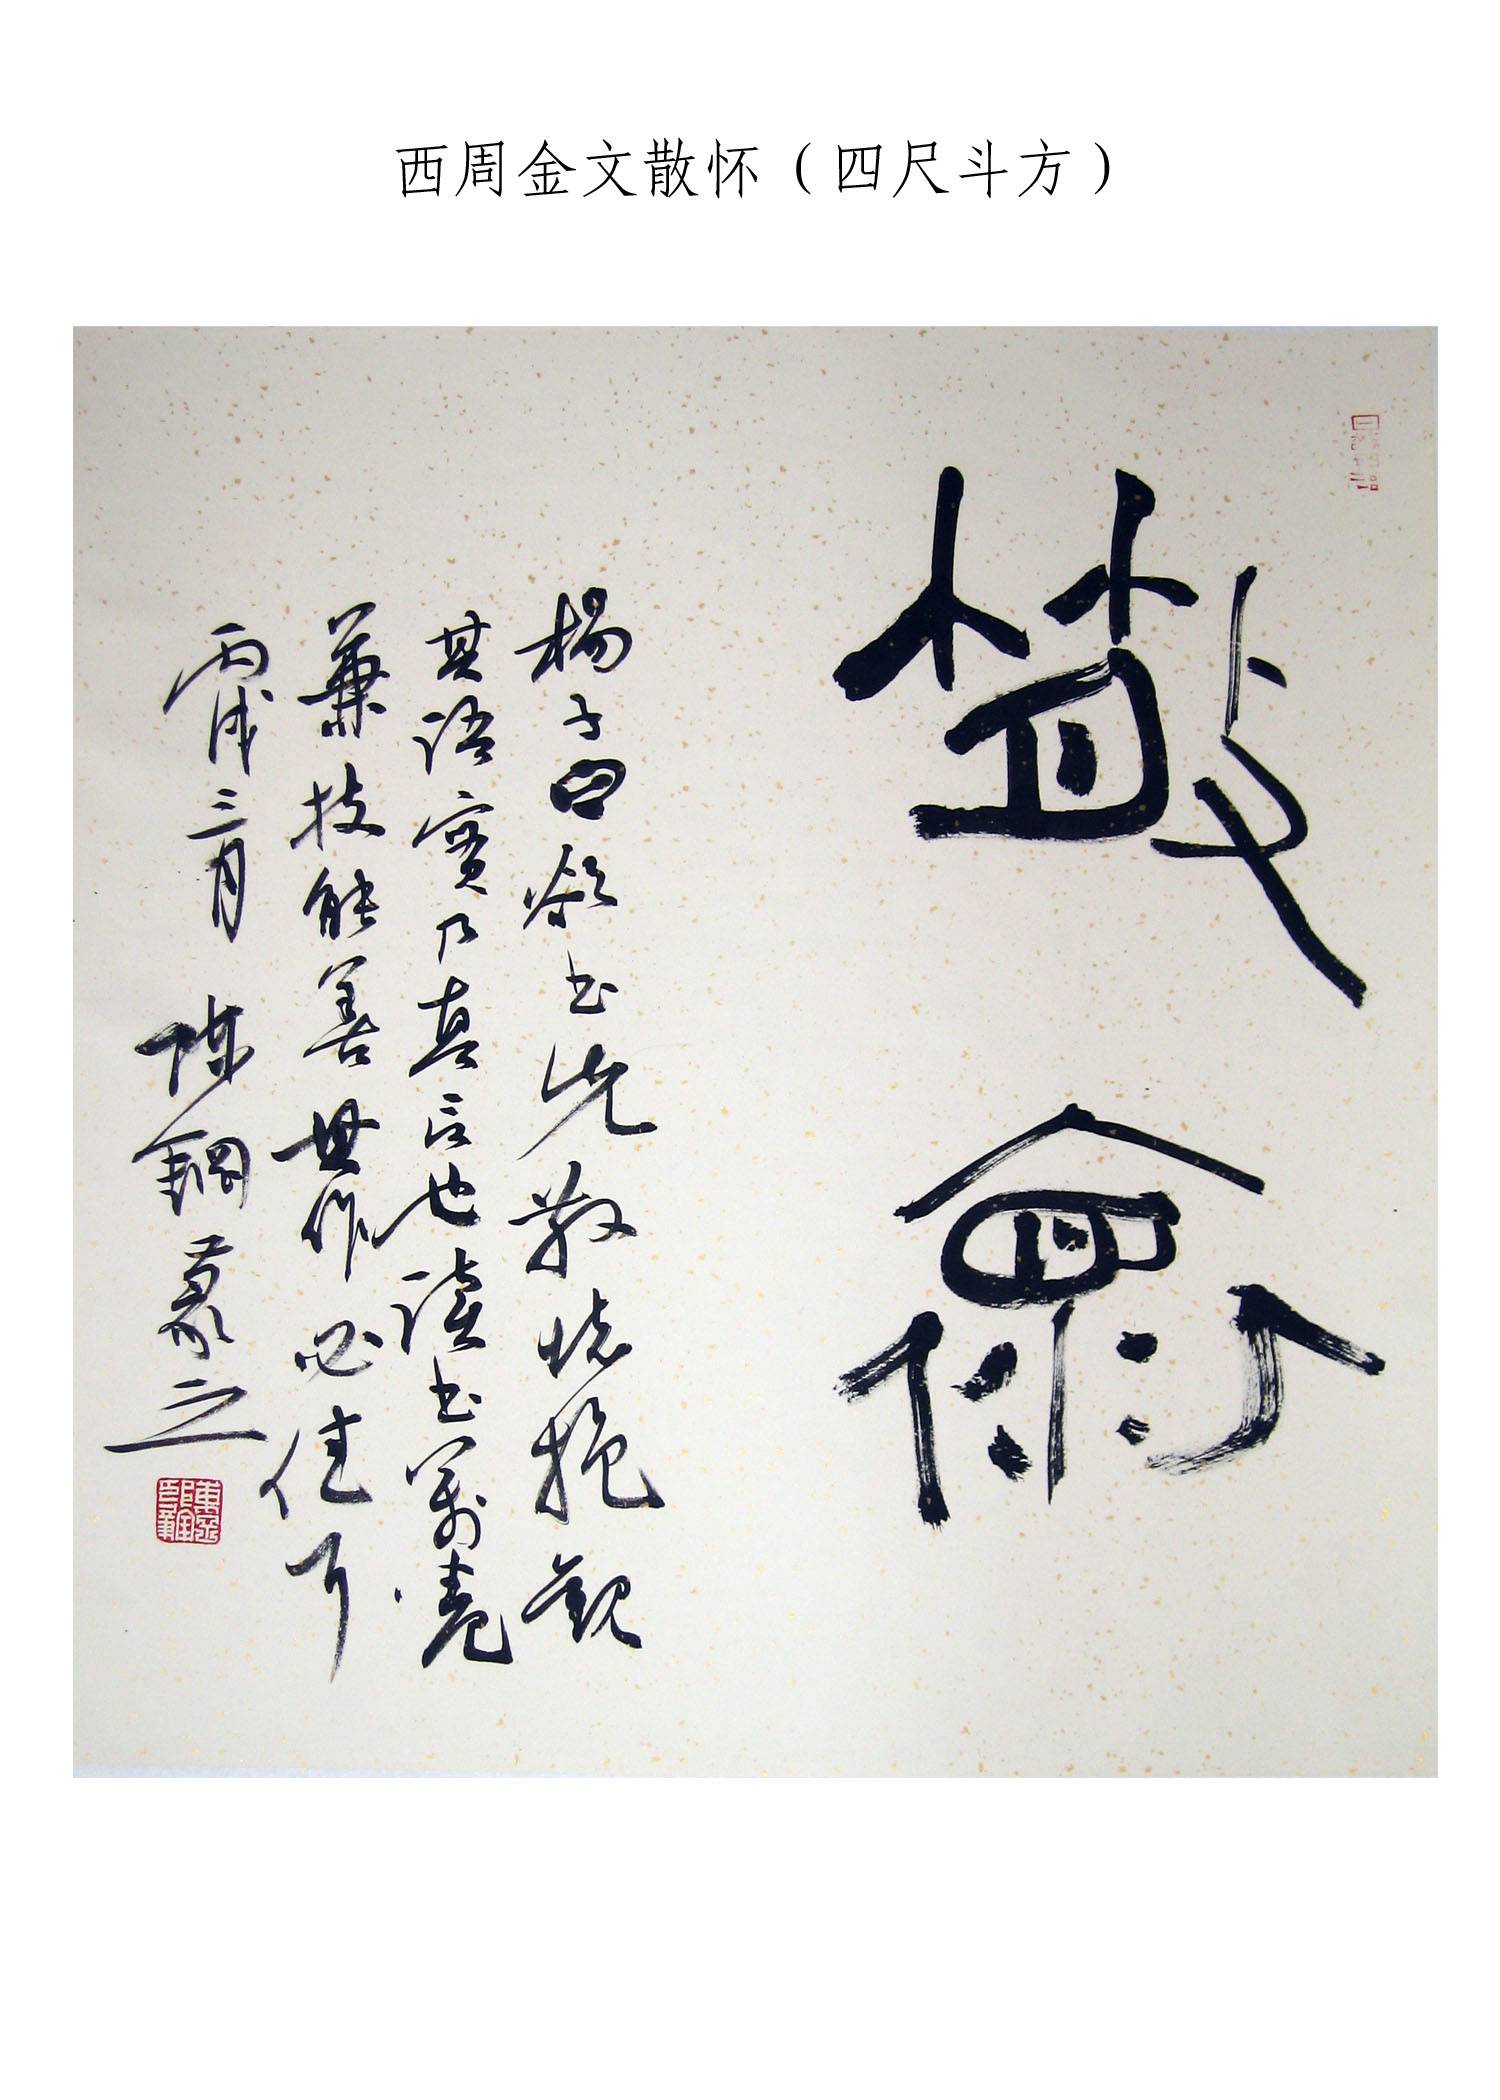 西周金文散怀（四尺斗方）
散懷
楊子曰欲書先散懷抱觀
其語實乃真言也讀書萬卷
兼技能善其作必佳耳
丙戌三月 陳鋼篆之